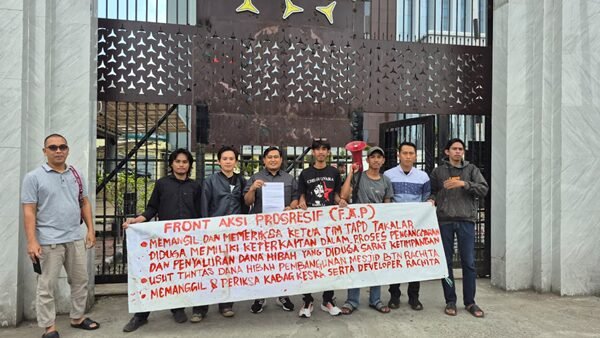 FRONT AKSI PROGRESIF (F.A.P)
• MEMANGIL DAN MEMERIKSA KETUA TIM TAPD TAKALAR
DIDUGA MEMILIKI KEPERKAITAN DALAM PROSES PENCANGGARAN
DAN PENYALURAN DANA HIBAH YANG DIDUGA SARAT KETIMPANGAN
• USUT TUNTAS DANA HIBAH PEMBANGUNAN MESJID BTN RACHITA
• MEMANGGIL & PERIKSA KABAG KESRA SERTA DEVELOPER RACHITA